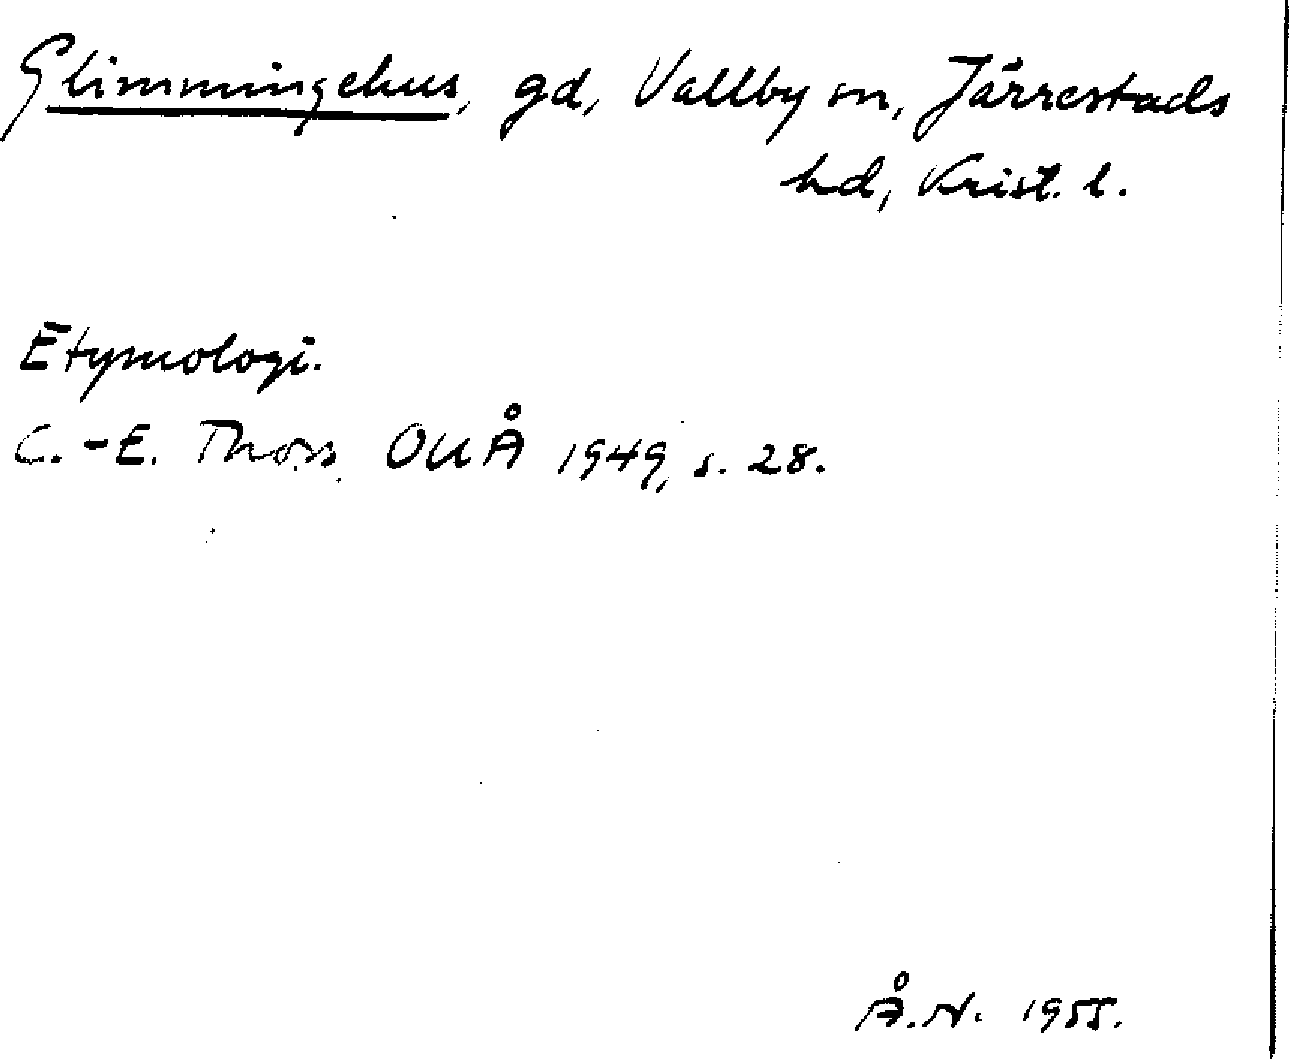 Glimmingehus, gd, Vallby sn, Järrestads
hd, Krist. l.
Etymologi.
C.-E. Thors, OUÅ 1949, s. 28.
Å.N. 1955.